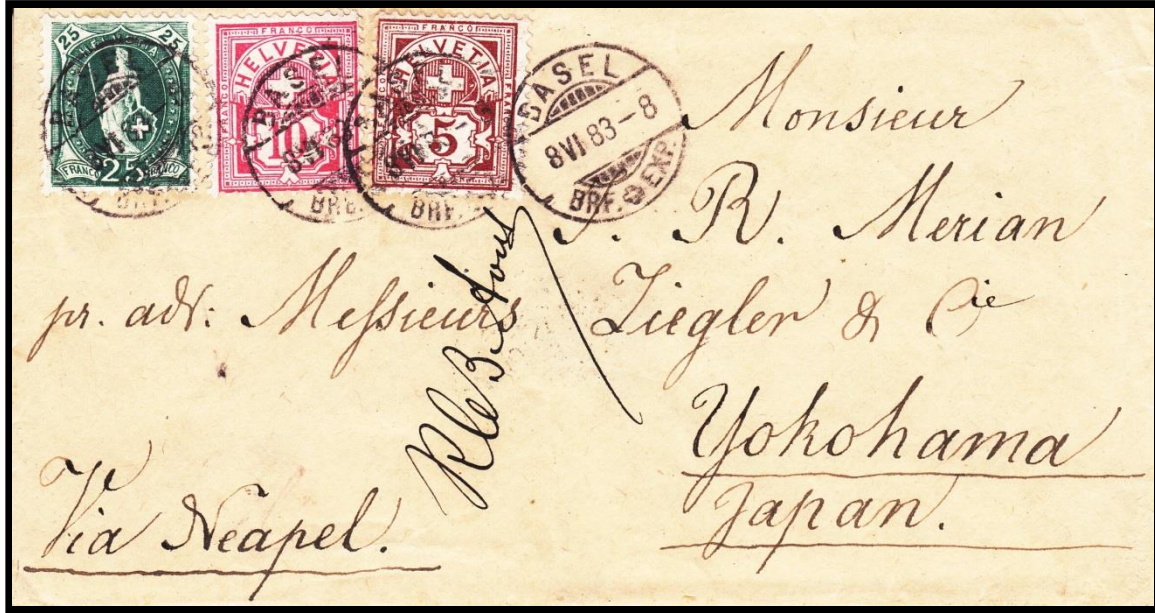 25 25
HELVETIA
FRANCO 25 FRANCO
FRANCO
HELVETIA
10
FRANCO
HELVETIA
5
BASEL
8 VI 83 - 8
BRF. EXP.
Monsieur
J. R. Merian
pr. adr: Messieurs Ziegler & Cie
Yokohama
Japan.
Via Neapel.